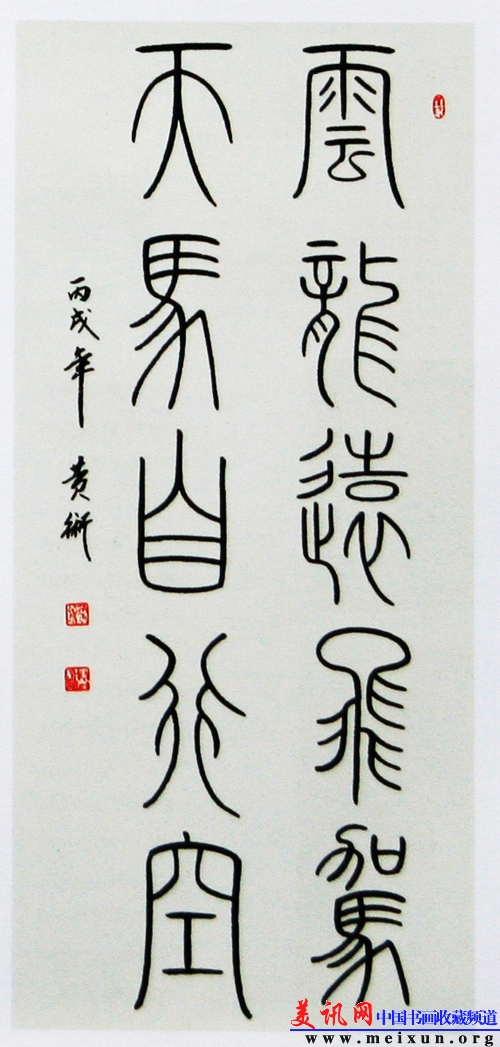 雲龍遠飛駕
天馬自行空
丙戌年 黄衍
美讯网 中国书画收藏频道
www.meixun.org